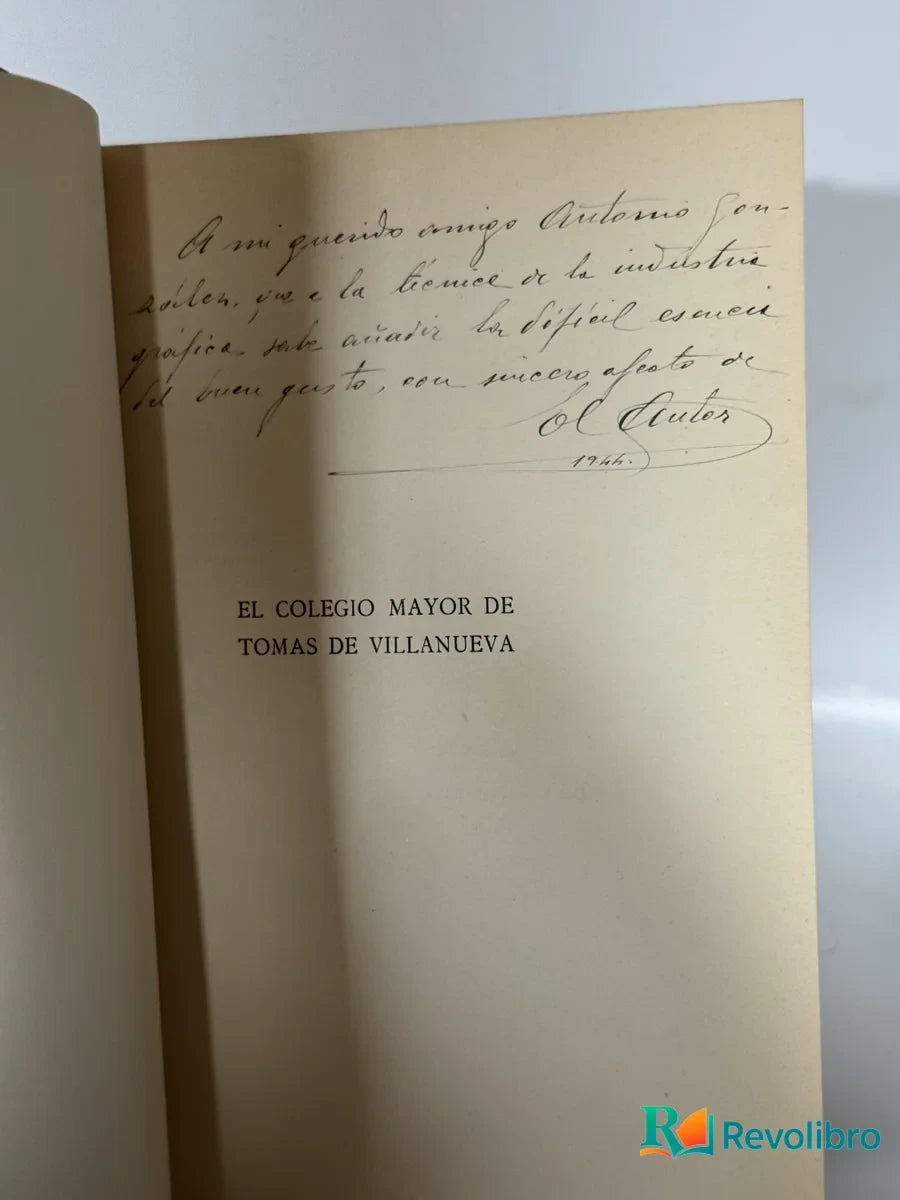 A mi querido amigo Antonio Gon-
zález, que a la técnica de la industria
gráfica sabe añadir la difícil esencia
del buen gusto, con sincero afecto de
el Autor
1944.
EL COLEGIO MAYOR DE
TOMAS DE VILLANUEVA
Revolibro